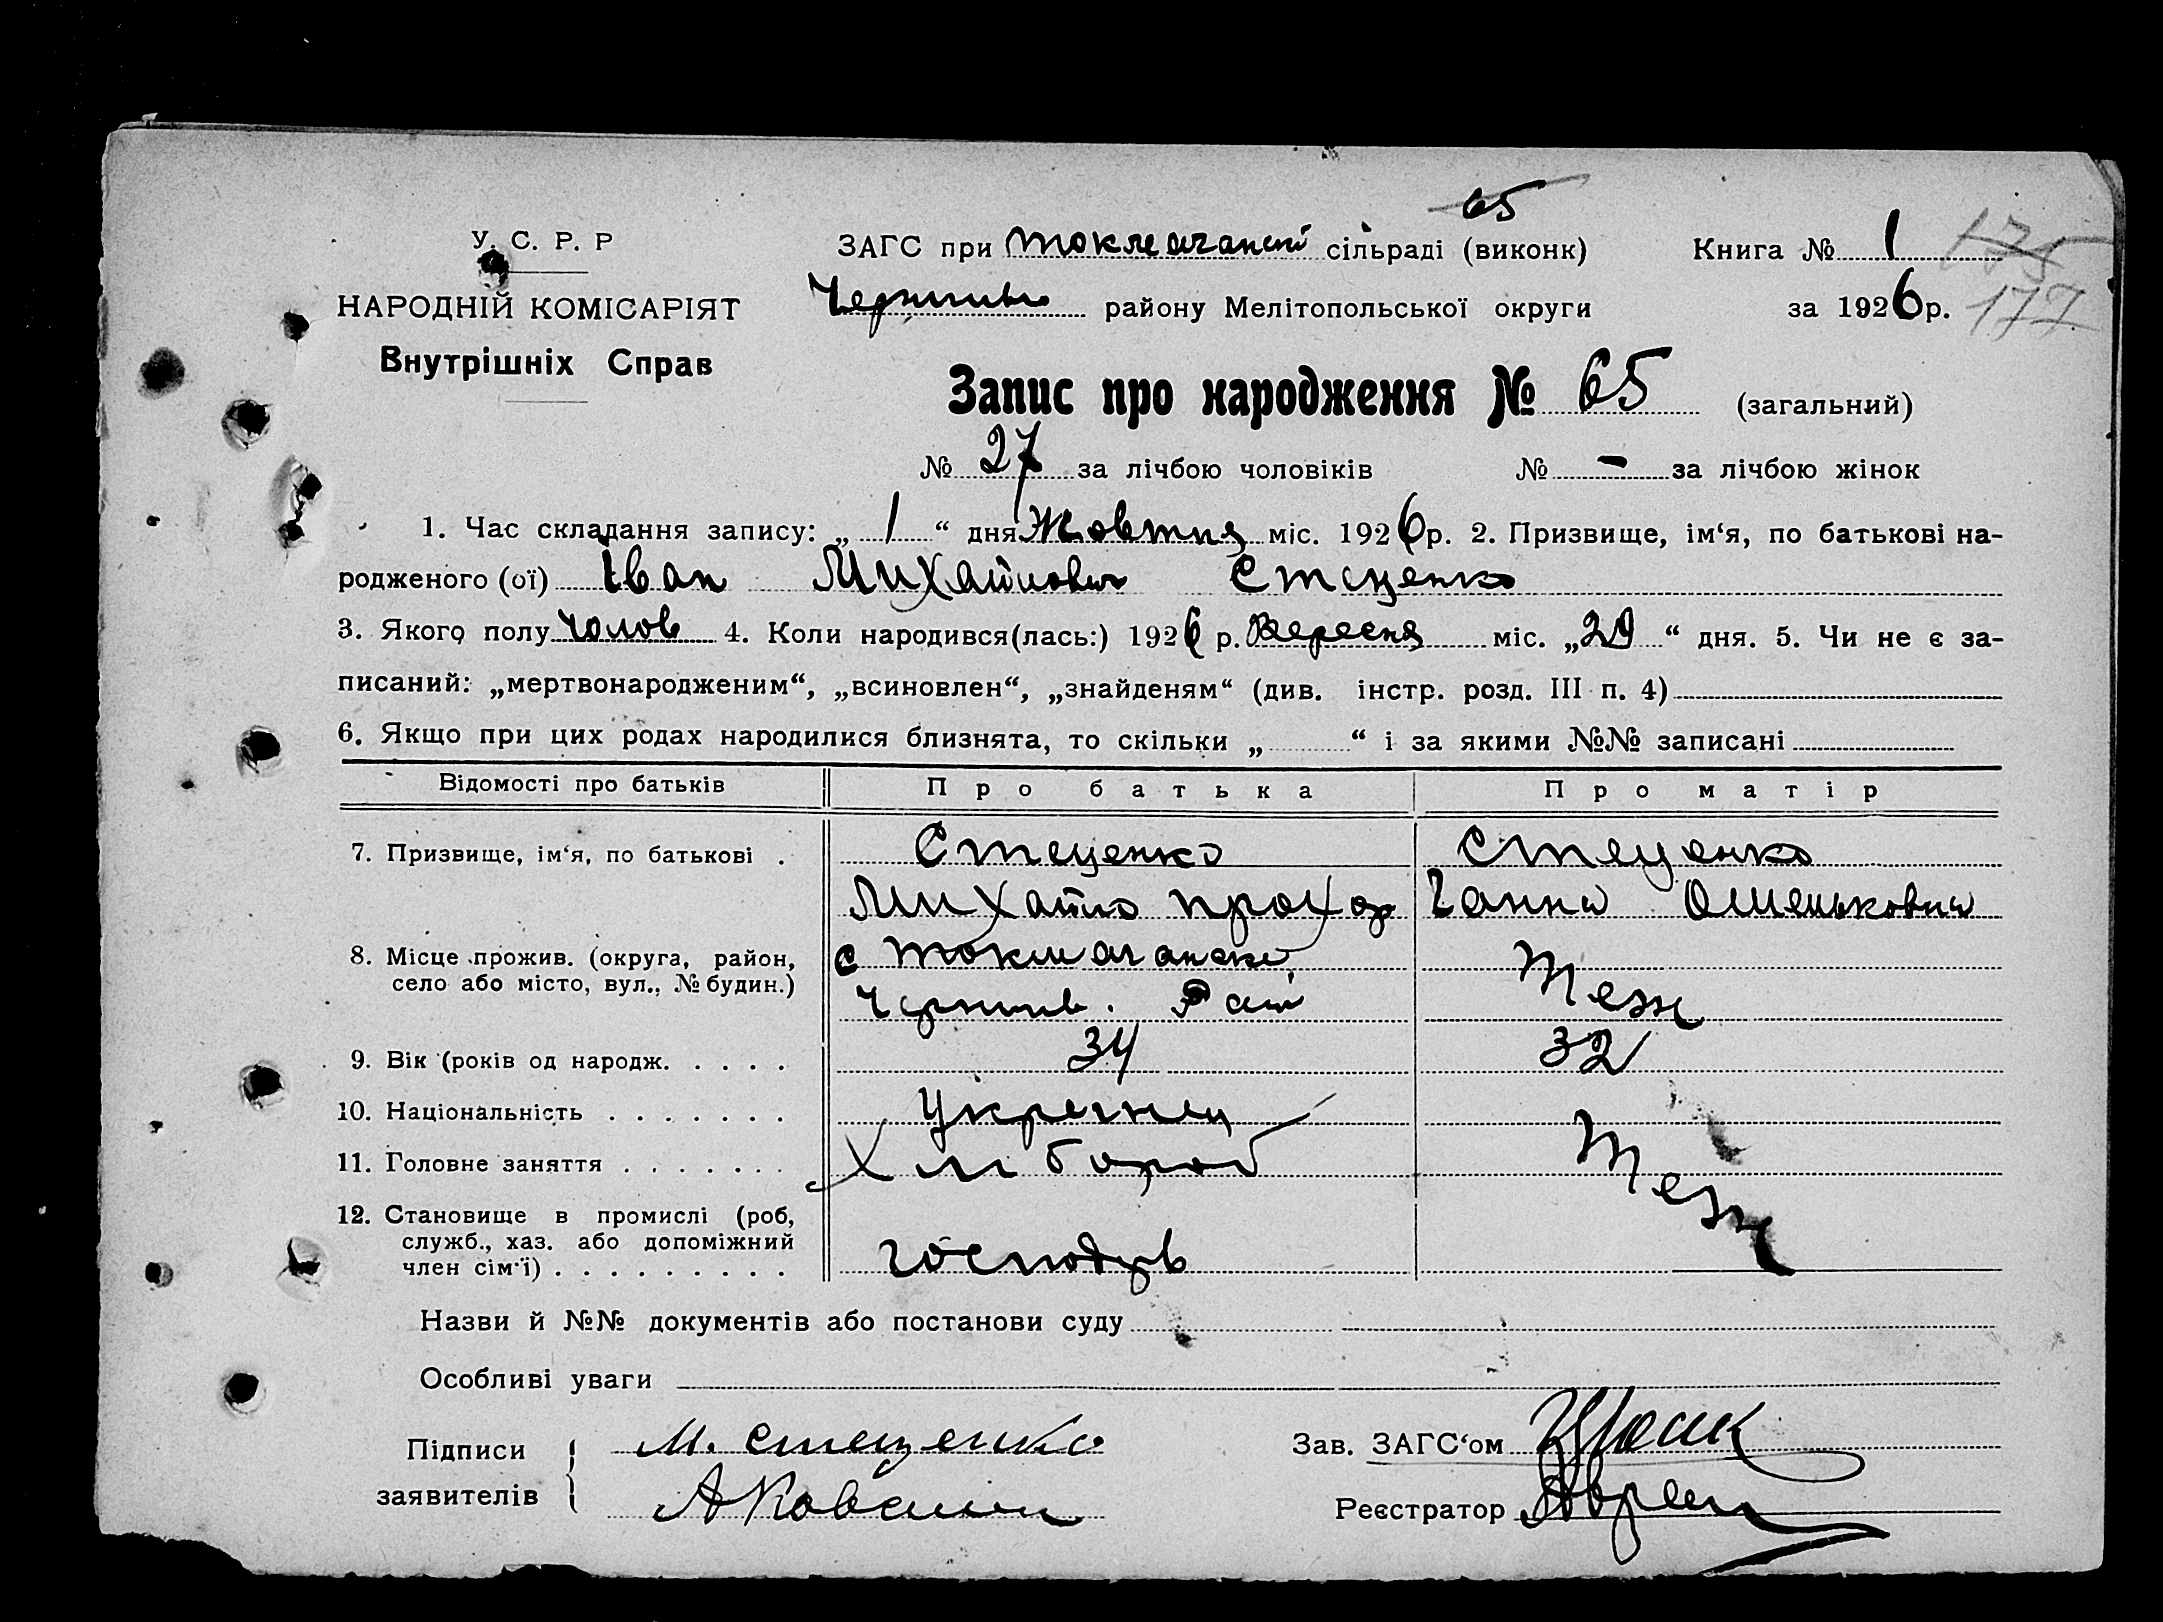 65
У. С. Р. Р
ЗАГС при сільраді (виконк)
Книга № 1 175
НАРОДНІЙ КОМІСАРІЯТ
району Мелітопольської округи
за 1926 р. 177
Внутрішніх Справ
Запис про народження № 65 (загальний)
№ 27 за лічбою чоловіків № - за лічбою жінок
1. Час складання запису: „ 1 “ дня Жовтня міс. 1926 р. 2. Призвище, ім‘я, по батькові на-
родженого (ої) Іван Михайлович Стеценко
3. Якого полу Чолов 4. Коли народився(лась:) 1926 р. Вересня міс. „29“ дня. 5. Чи не є за-
писаний: „мертвонародженим“, „всиновлен“, „знайденям“ (див. інстр. розд. III п. 4)
6. Якщо при цих родах народилися близнята, то скільки „ “ і за якими №№ записані
Відомості про батьків Про батька Про матір
7. Призвище, ім‘я, по батькові . Стеценко Стеценко
Михайло Прохор Ганна
8. Місце прожив. (округа, район, с
село або місто, вул., № будин.) Черниів. Рай Теж
9. Вік (років од народж. . . . . 34 32
10. Національність . . . . . . . Украінец
11. Головне заняття . . . . . . . Хлібороб Теж
12. Становище в промислі (роб,
служб., хаз. або допоміжний
член сім‘ї) . . . . . . . . . господар
Назви й №№ документів або постанови суду
Особливі уваги
Підписи М. Стеценко Зав. ЗАГС‘ом
заявителів Реєстратор